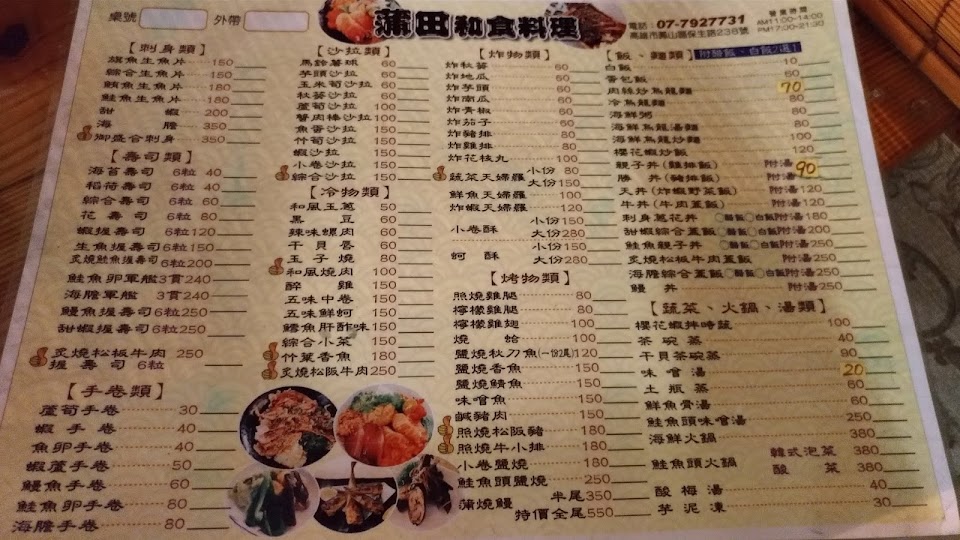 桌號
外帶
蒲田和食料理
電話:07-7927731
高雄市鳳山區保生路238號
營業時間
AM11:00-14:00
PM17:00-21:30
【刺身類】
旗魚生魚片 150
綜合生魚片 150
鮪魚生魚片 180
鮭魚生魚片 180
甜蝦 350
海膽 350
御盛合刺身 350
【壽司類】
海苔壽司 6粒 40
稻荷壽司 6粒 40
綜合壽司 6粒 60
花壽司 6粒 80
蝦握壽司 6粒 120
生魚握壽司 6粒 150
炙燒鮭魚握壽司 6粒 200
鮭魚卵軍艦 3貫 240
海膽軍艦 3貫 240
鰻魚握壽司 6粒 250
甜蝦握壽司 6粒 250
炙燒松板牛肉握壽司 6粒 250
【手卷類】
蘆筍手卷 30
蝦手卷 40
魚卵手卷 40
蝦蘆手卷 50
鰻魚手卷 60
鮭魚卵手卷 80
海膽手卷 80
【沙拉類】
馬鈴薯球 60
芋頭沙拉 60
玉米筍沙拉 60
秋葵沙拉 60
蘆筍沙拉 100
蟹肉棒沙拉 100
魚蛋沙拉 150
竹筍沙拉 150
蝦沙拉 150
小卷沙拉 150
綜合沙拉 180
【冷物類】
和風玉蔥 50
黑豆 50
辣味螺肉 60
干貝唇 60
玉子燒 80
和風燒肉 100
醉雞 150
五味中卷 150
五味鮮蚵 150
鱈魚肝酢味 150
綜合小菜 150
竹葉香魚 180
炙燒松阪牛肉 250
【炸物類】
炸秋葵 60
炸地瓜 60
炸芋頭 60
炸南瓜 60
炸青椒 60
炸茄子 60
炸豬排 80
炸雞排 80
炸花枝丸 100
蔬菜天婦羅 小份 80
大份 150
鮮魚天婦羅 100
炸蝦天婦羅 120
小卷酥 小份 150
大份 280
蚵酥 小份 150
大份 280
【烤物類】
照燒雞腿 80
檸檬雞腿 100
檸檬雞翅 100
燒蛤 100
鹽燒秋刀魚(一份2尾) 120
鹽燒香魚 150
鹽燒鯖魚 150
味噌魚 150
鹹豬肉 150
照燒松阪豬 180
照燒牛小排 180
小卷鹽燒 180
鮭魚頭鹽燒 250
蒲燒鰻 半尾 350
特價全尾 550
【飯、麵類】
白飯 10
蛋包飯 60
肉絲炒烏龍麵 70
冷烏龍麵 80
海鮮粥 80
海鮮烏龍湯麵 80
海鮮烏龍炒麵 100
櫻花蝦炒飯 80
親子丼(雞排飯) 附湯 90
勝丼(豬排飯) 附湯
天丼(炸蝦野菜飯) 附湯 120
牛丼(牛肉蓋飯) 附湯 120
刺身蔥花丼 ○醋飯○白飯 附湯 180
甜蝦綜合蓋飯 ○醋飯○白飯 附湯 250
鮭魚親子丼 ○醋飯○白飯 附湯 250
炙燒松板牛肉蓋飯 附湯 250
海膽綜合蓋飯 ○醋飯○白飯 附湯 250
鰻丼 附湯 250
【蔬菜、火鍋、湯類】
櫻花蝦拌時蔬 100
茶碗蒸 40
干貝茶碗蒸 90
味噌湯 20
土瓶蒸 60
鮮魚骨湯 60
鮭魚頭味噌湯 250
海鮮火鍋 380
鮭魚頭火鍋 韓式泡菜 380
酸菜 380
酸梅湯 40
芋泥凍 30